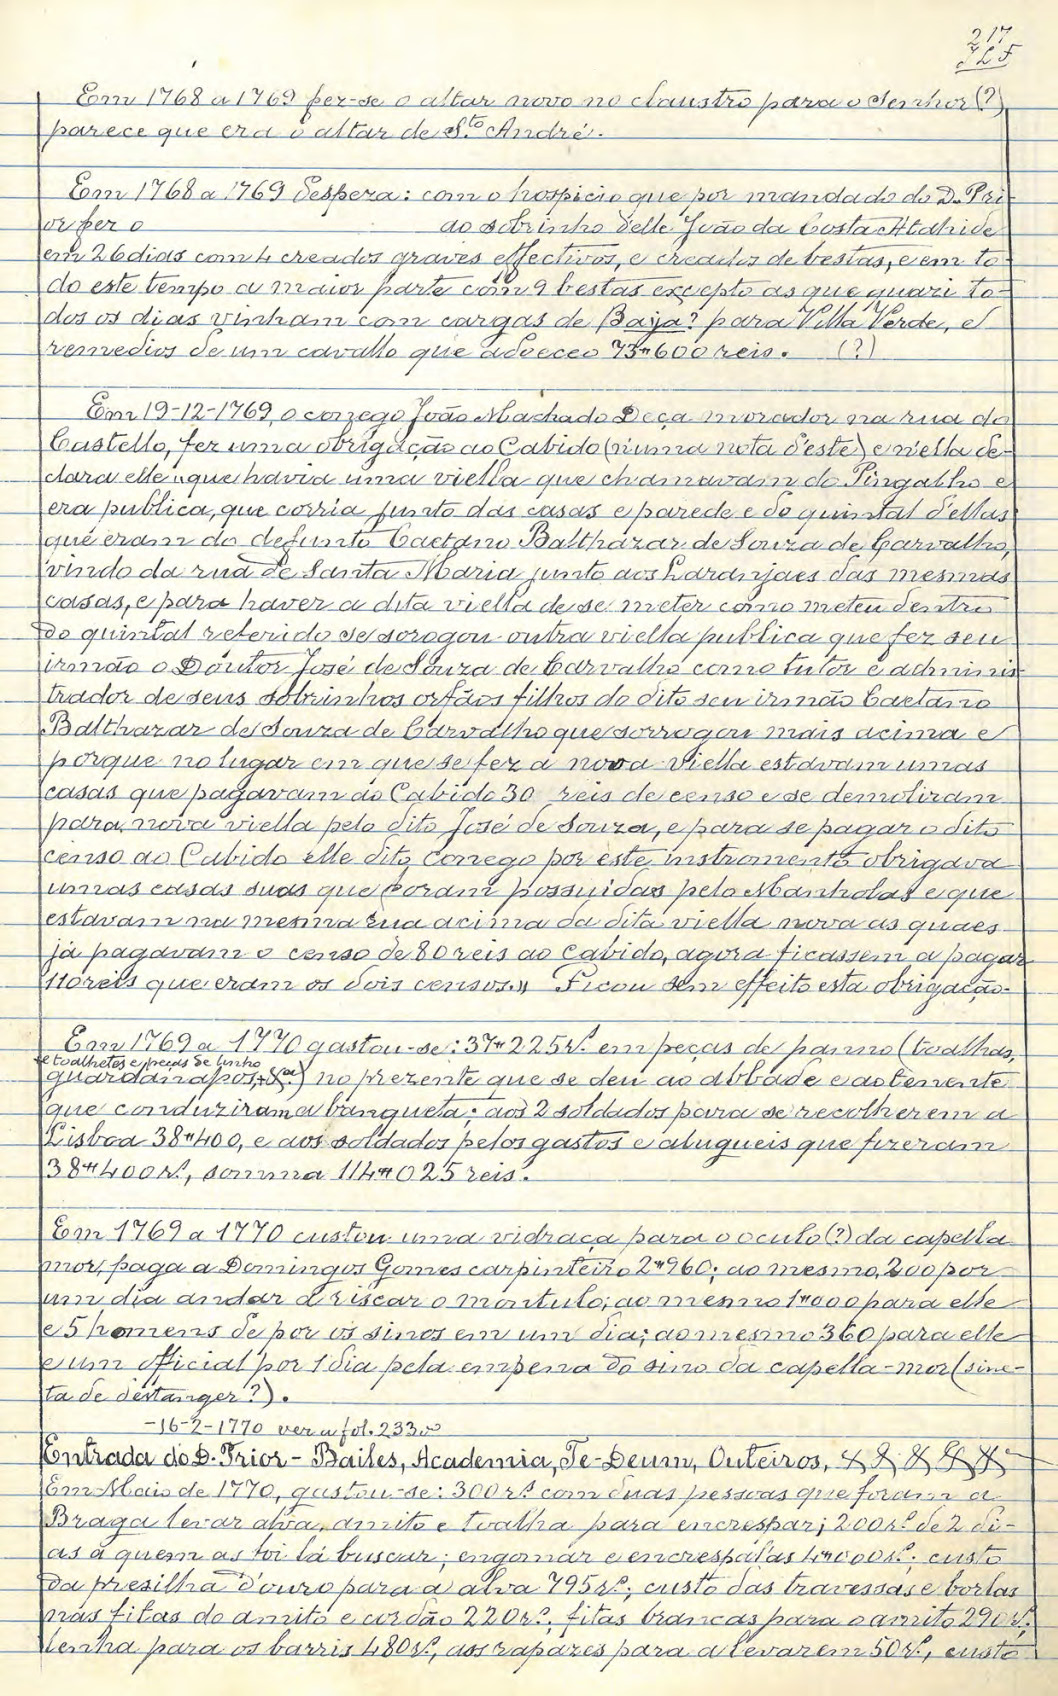 217
Em 1768 a 1769 fez-se o altar novo no claustro para o Senhor (?)
parece que era o altar de S.to André.
Em 1768 a 1769 Despeza: com o hospicio que por mandado do D. Pri-
or fez o ao sobrinho delle João da Costa Athaide
em 26 dias com 4 creados graves effectivos, e creados de bestas, e em to-
do este tempo a maior parte com 9 bestas excepto as que quazi to-
dos os dias vinham com cargas de Baja? para Villa Verde, e
remedios de um cavallo que adoeceo 73"600 reis. (?)
Em 19-12-1769, o conego João Machado Deça morador na rua do
Castello, fez uma obrigação ao Cabido (n'uma nota d'este) e n'ella de-
clara elle "que havia uma viella que chamavam do Pingalho e
era publica, que corria junto das casas e parede e do quintal d'ellas
que eram do defunto Caetano Balthazar de Souza de Carvalho,
vindo da rua de Santa Maria junto aos Laranjaes das mesmas
casas, e para haver a dita viella de se meter como meteu dentro
do quintal referido se sorogou outra viella publica que fez seu
irmão o Doutor José de Souza de Carvalho como tutor e adminis-
trador de seus sobrinhos orfãos filhos do dito seu irmão Caetano
Balthazar de Souza de Carvalho que sorrogou mais acima e
porque no lugar em que se fez a nova viella estavam umas
casas que pagavam ao Cabido 30 reis de censo e se demoliram
para nova viella pelo dito José de Souza, e para se pagar o dito
censo ao Cabido elle dito conego por este instromento obrigava
umas casas suas que foram possuidas pelo Manholas e que
estavam na mesma rua acima da dita viella nova as quaes
já pagavam o censo de 80 reis ao Cabido, agora ficassem a pagar
110 reis que eram os dois censos." Ficou sem effeito esta obrigação.
Em 1769 a 1770 gastou-se: 37"225 rs. em peças de panno (toalhas,
e toalhetes e peças de linho
guardanapos, &ca.) no prezente que se deu ao abbade e ao tenente
que conduziram a banqueta; aos 2 soldados para se recolherem a
Lisboa 38"400, e aos soldados pelos gastos e alugueis que fizeram
38"400 rs., somma 114"025 reis.
Em 1769 a 1770 custou uma vidraça para o oculo (?) da capella
mor, paga a Domingos Gomes carpinteiro 2"960; ao mesmo, 200 por
um dia andar a riscar o montulo; ao mesmo 1"000 para elle
e 5 homens de por os sinos em um dia; ao mesmo 360 para elle
e um official por 1 dia pela empena do sino da capella-mor (sine-
ta de destanger?).
-16-2-1770 ver a fol. 233 vo
Entrada do D. Prior - Bailes, Academia, Te-Deum, Outeiros, & & & & &
Em Maio de 1770, gastou-se: 300 rs. com duas pessoas que foram a
Braga levar alva, amito e toalha para encrespar; 200 rs. de 2 di-
as a quem as foi lá buscar; engomar e encrespalas 4"000 rs.; custo
da presilha d'ouro para a alva 795 rs.; custo das travessas e borlas
nas fitas do amito e cordão 220 rs.; fitas brancas para o amito 290 rs.;
lenha para os barris 480 rs., aos rapazes para a levarem 50 rs., custo